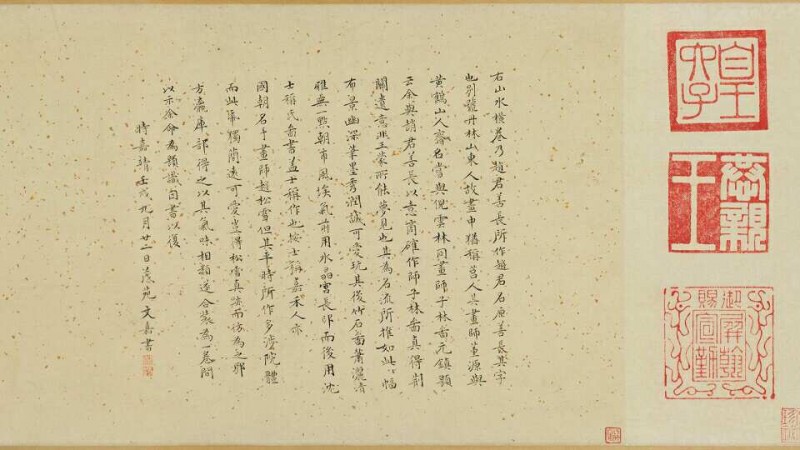 皇六子
恭親王
右山水橫卷乃趙君善長所作趙君名原善長其字
也別號丹林山東人故畫中猶稱莒人其畫師董源與
黃鶴山人齊名嘗與倪雲林同畫師子林啚元鎮題
云余與趙君善長以意商確作師子林啚真得荊
關遺意非王蒙所能夢見也其為名流所推如此此幅
布景幽深筆墨秀潤誠可愛玩其後竹石啚蕭灑清
雅無一點朝市風埃氣前用水晶宮長印而後用沈
士稱氏啚書蓋士稱作也按士稱嘉禾人亦
國朝名手畫師趙松雪但其平時所作多涉院體
而此幅獨蕭遠可愛豈得松雪真跡而仿為之耶
方 庫部得之以其氣味相類遂合裝為一卷間
以示余會為題識因書以後
時嘉靖壬戌九月廿二日茂苑文嘉書